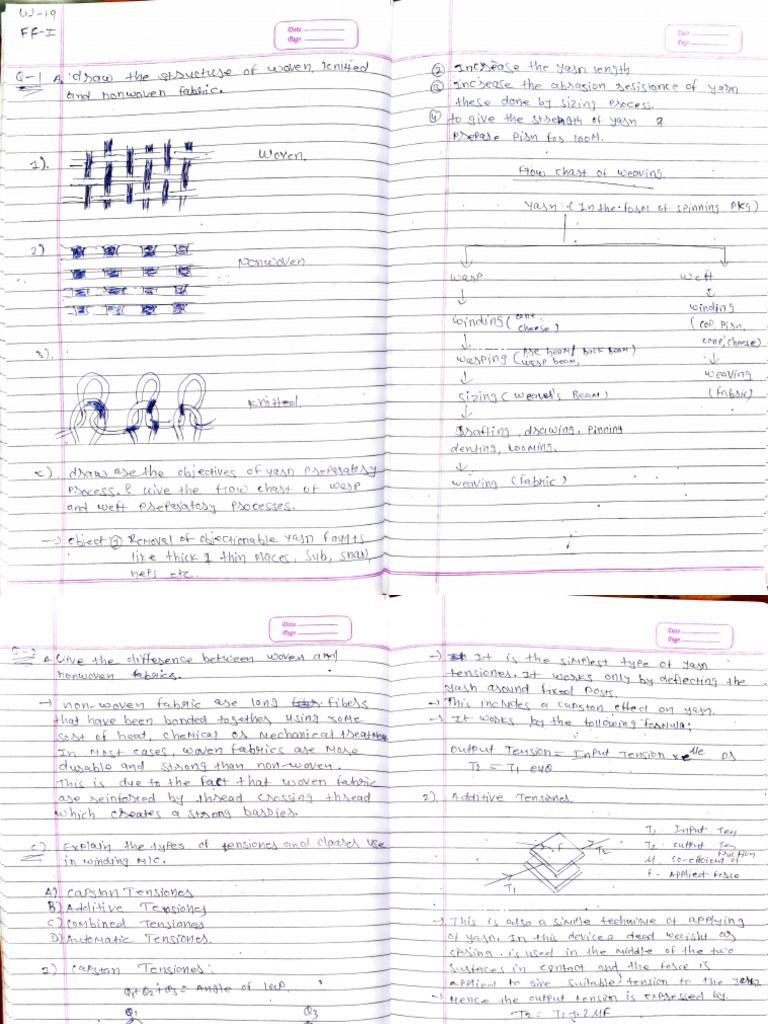 W-19
FF-I
Date
Page
Q-1 A. draw the structure of woven, knitted
and nonwoven fabric.
1). Woven.
2) nonwoven
3).
Knitted
C). draw are the objectives of yarn preparatory
process. & Give the flow chart of warp
and weft preparatory processes.
→ object ① Removal of objectionable yarn faults
like thick & thin places, sub, snarl,
neps etc.
Date
Page
② Increase the yarn length
③ Increase the abrasion resistance of yarn
these done by sizing process.
④ to give the strength of yarn &
prepare pirn for loom.
Flow chart of weaving
Yarn (In the form of spinning PKG)
warp weft
↓ ↓
winding (cone, cheese) winding (cop, pirn, cone, cheese)
↓ ↓
warping ( beam / back beam) warp beam, weaving
↓ (fabric)
sizing (weaver's Beam)
↓
Drafting, drawing, pinning
denting, looming.
↓
weaving (fabric)
Date
Page
A Give the difference between woven and
nonwoven fabrics.
→ non-woven fabric are long fibers
that have been bonded together using some
sort of heat, chemical or mechanical
In most cases, woven fabrics are more
durable and strong than non-woven.
This is due to the fact that woven fabric
are reinforced by thread crossing thread
which creates a strong barries.
C) Explain the types of tensiones and use
in winding M/C.
A) Capstan Tensiones
B) Additive Tensiones
C) Combined Tensiones
D) Automatic Tensiones.
1) Capstan Tensiones:
Q1+Q2+Q3 = Angle of lap.
Q1 Q3
Date
Page
→ It is the simplest type of yarn
tensiones. It works only by deflecting the
yash around fixed posts.
→ This includes a capstan effect on yarn.
→ It works by the following formula;
output Tension = Input Tension x e^μe or
T2 = T1 eμθ
2). Additive Tensiones.
T1 - Input Ten
T2 - output Ten
μ - co-efficient of friction
F - Applied force
F
T2
T1
→ This is also a simple technique of applying
of yarn. In this device a dead weight or
spring. is used in the middle of the two
surfaces in contact and the force is
applied to give suitable tension to the yarn
→ Hence the output tension is expressed by
T2 = T1 + 2μF